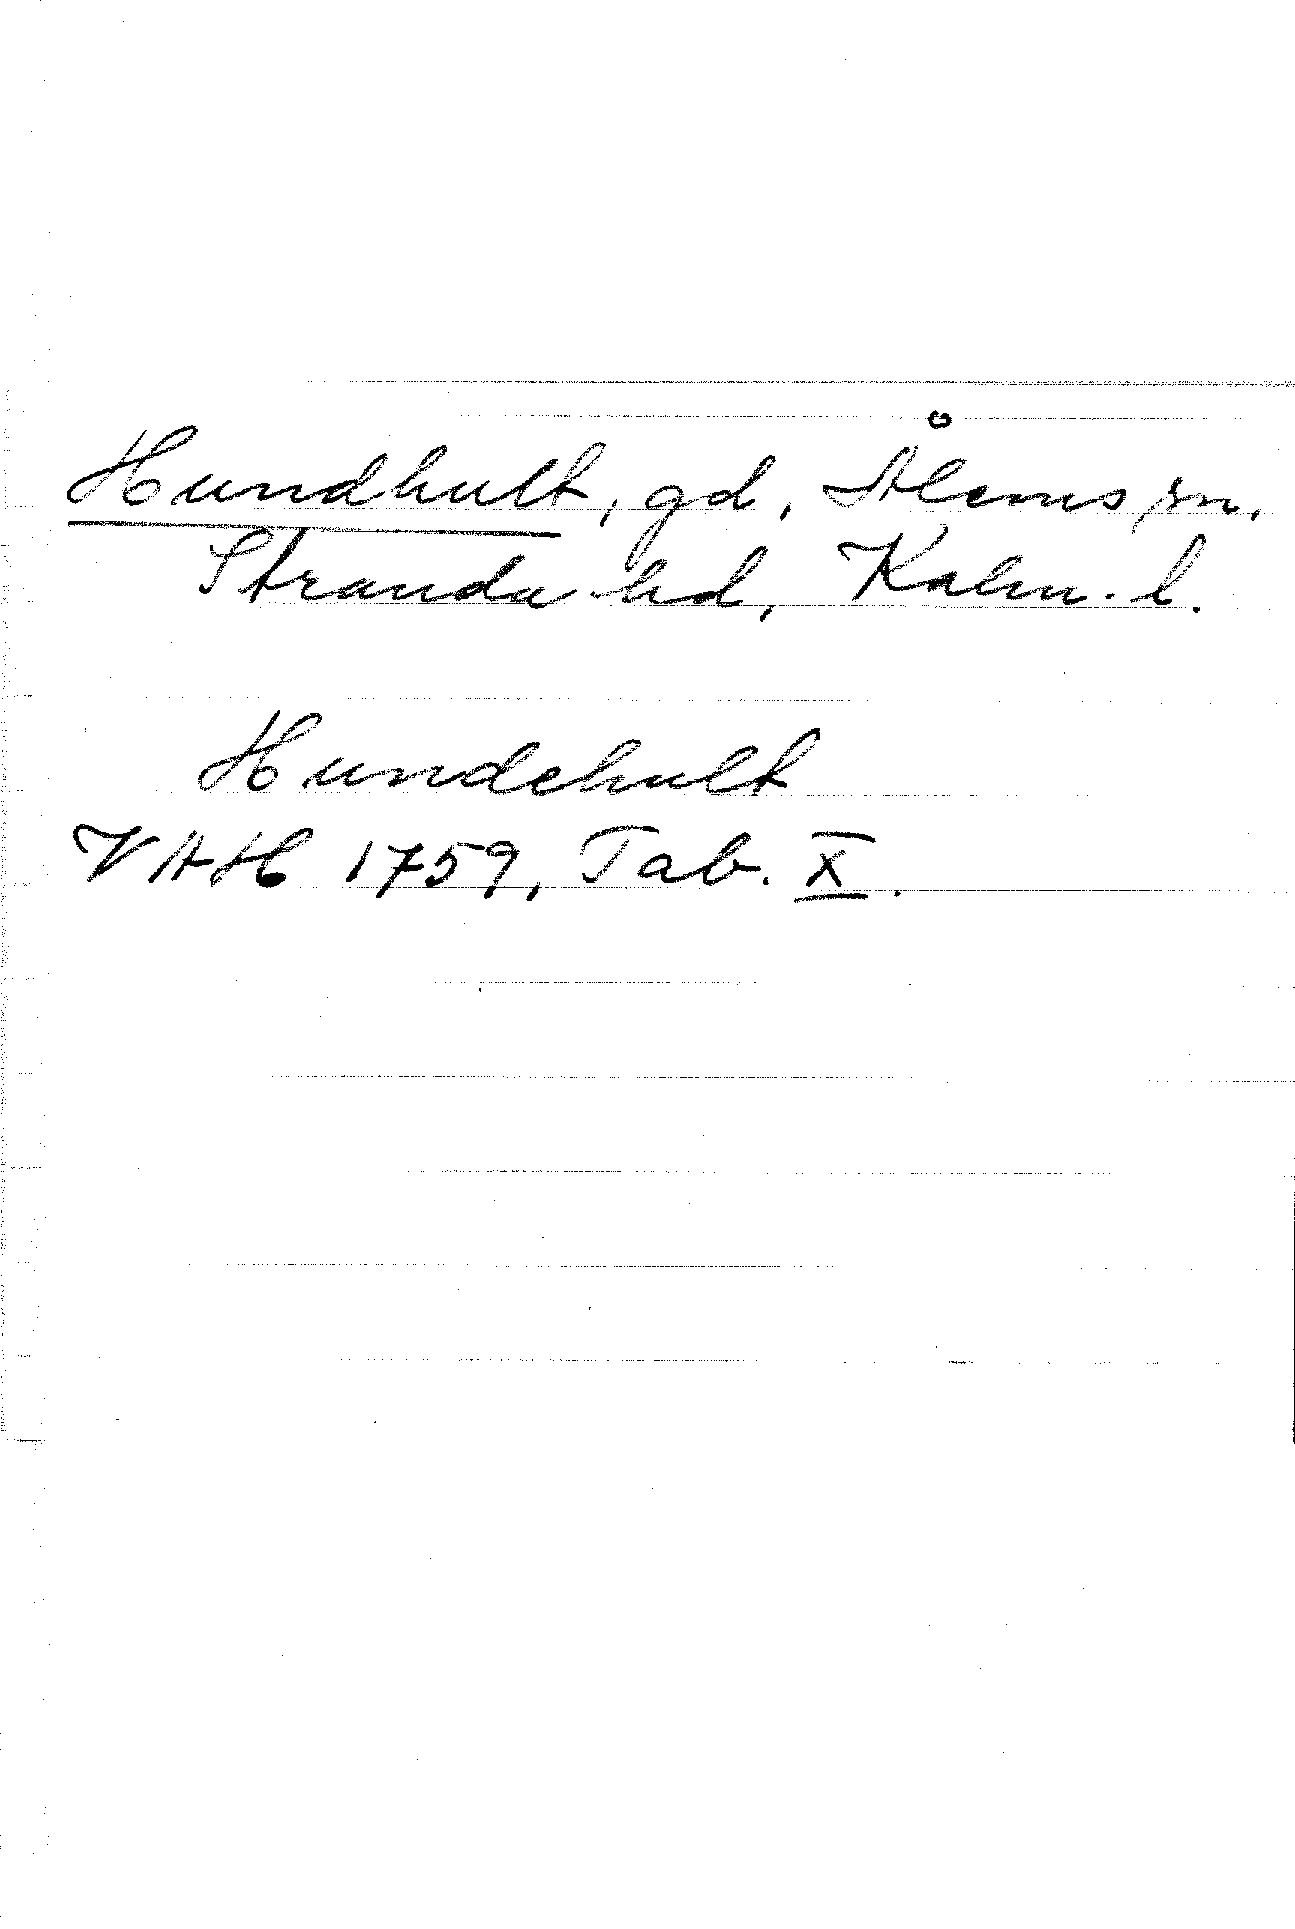 Hundhult, gd, Ålems sn,
Stranda hd, Kalm. l.
Hundehult
VAH 1759, Tab. X.